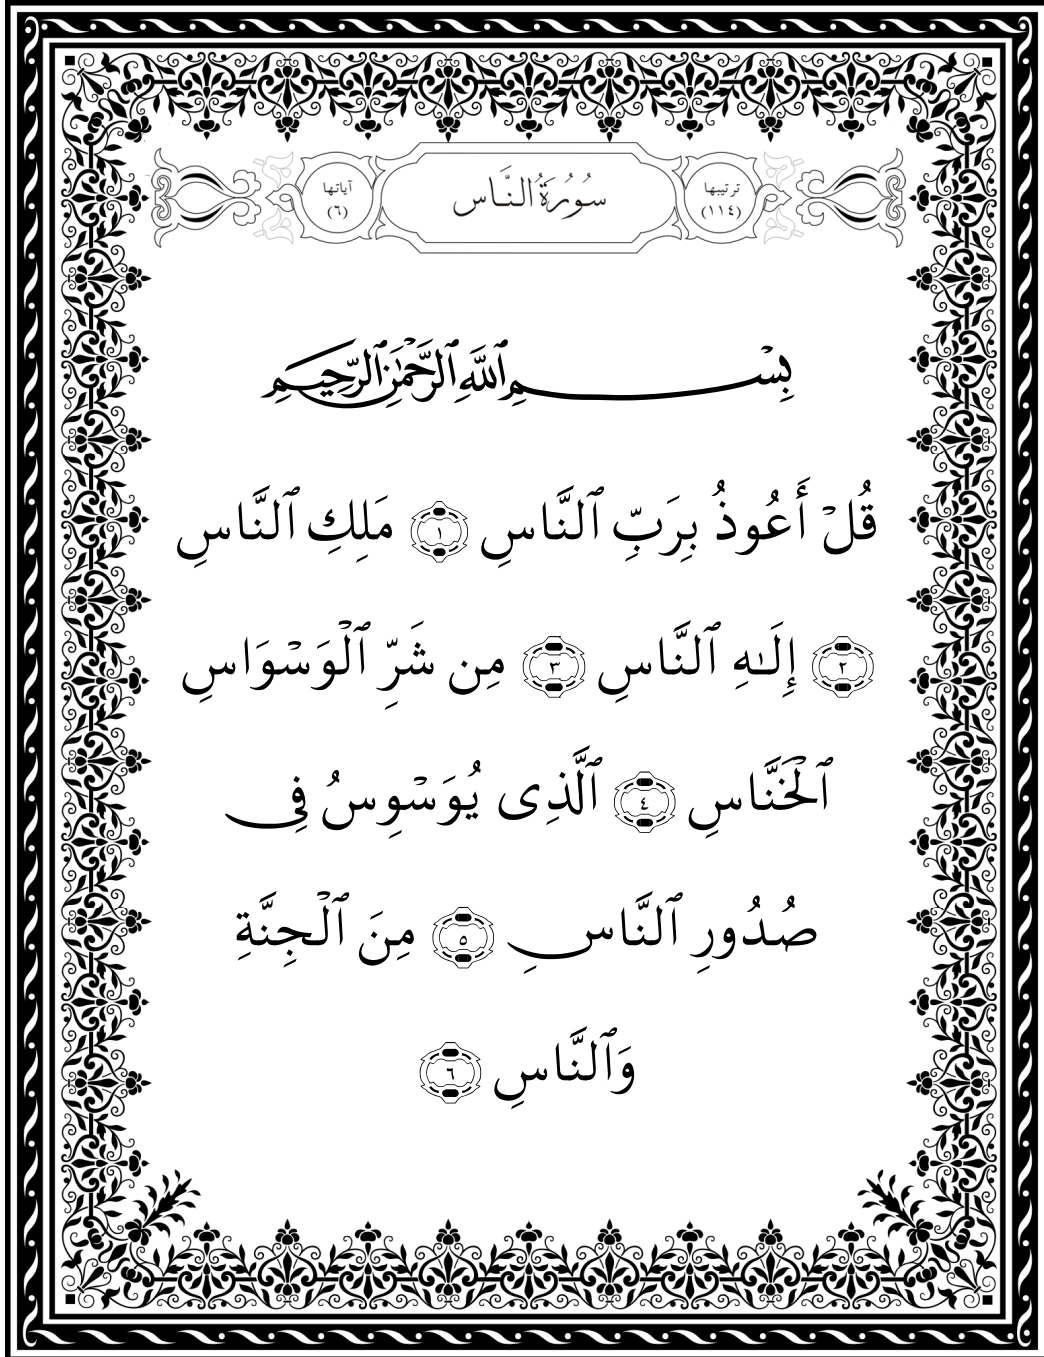 ترتيبها
(١١٤)
سُورَةُ النَّاس
آياتها
(٦)
بِسْمِ ٱللَّهِ ٱلرَّحْمَٰنِ ٱلرَّحِيمِ
قُلْ أَعُوذُ بِرَبِّ ٱلنَّاسِ ١ مَلِكِ ٱلنَّاسِ
٢ إِلَـٰهِ ٱلنَّاسِ ٣ مِن شَرِّ ٱلْوَسْوَاسِ
ٱلْخَنَّاسِ ٤ ٱلَّذِى يُوَسْوِسُ فِى
صُدُورِ ٱلنَّاسِ ٥ مِنَ ٱلْجِنَّةِ
وَٱلنَّاسِ ٦